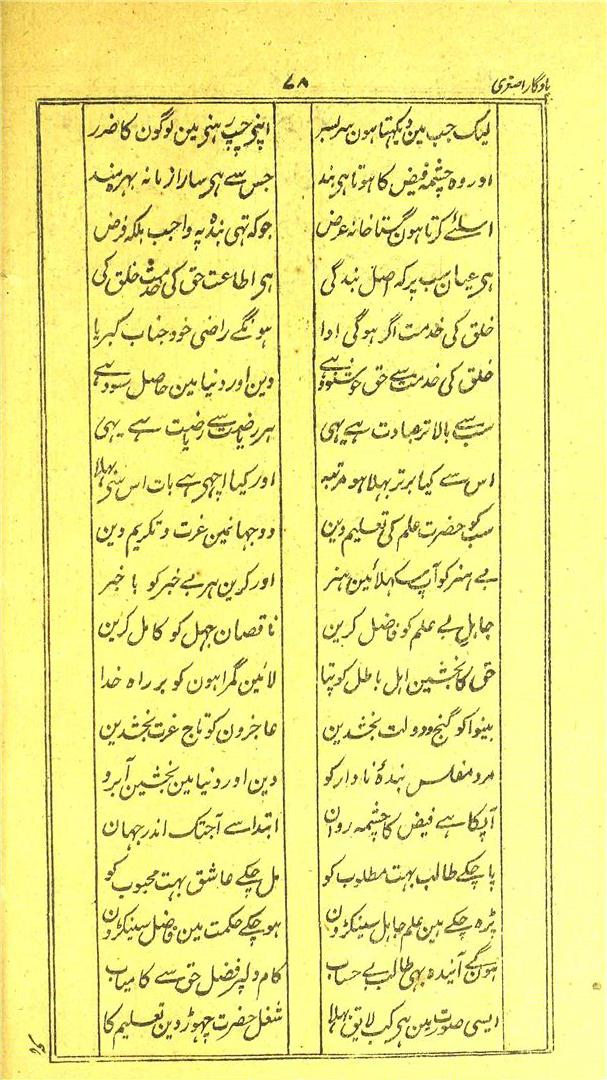 یادگار اصغری
۷۸
لیک جب مین دیکہتا ہون سربسر اپنی چپ ہنی مین لوگون کا ضرر
اور وہ چشمہ فیض کا ہوتا ہی بند جس سے ہی سارا زمانہ بہرہ مند
اسلئے کرتا ہون گستاخانہ عرض جو کہ تہی بندہ پہ واجب بلکہ فرض
ہی عیان سب پر کہ اصل بندگی ہی اطاعت حق کی خدمت خلق کی
خلق کی خدمت اگر ہوگی ادا ہونگے راضی خود جناب کبریا
خلق کی خدمت سے حق خوشنود ہے دین اور دنیا مین حاصل سود ہے
سب سے بالاتر عبادت ہے یہی ہر ریاضت سے ریاضت ہے یہی
اس سے کیا برتر بہلا ہو مرتبہ اور کیا اچہی ہے بات اس سی بہلا
سب کو حضرت علم کی تعلیم دین دو جہانمین عزت و تکریم دین
بے ہنر کو آپ سکہلائین ہنر اور کرین ہر بے خبر کو با خبر
جاہل بے علم کو فاضل کرین ناقصان جہل کو کامل کرین
حق کا بخشین اہل باطل کو پتا لائین گمراہون کو بر راہ خدا
بینوا کو گنج و دولت بخشدین عاجزون کو تاج عزت بخشدین
مرد مفلس بندۂ نادار کو دین اور دنیا مین بخشین آبرو
آپکا ہے فیض کا چشمہ روان ابتدا سے آجتک اندر جہان
پا چکے طالب بہت مطلوب کو مل چکے عاشق بہت محبوب کو
پڑہ چکے ہین علم جاہل سینکڑون ہو چکے حکمت مین فاضل سینکڑون
ہون گے آئیندہ بہی طالب بے حساب کام دلپر فضل حق سے کامیاب
ایسی صورت مین ہی کب لایق بہلا شغل حضرت چہوڑ دین تعلیم کا